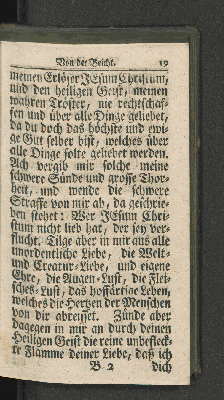 Von der Beicht. 19
meinen Erlöser JEsum Christum,
und den heiligen Geist, meinen
wahren Tröster, nie rechtschaf-
fen und über alle Dinge geliebet,
da du doch das höchste und ewi-
ge Gut selber bist, welches über
alle Dinge solte geliebet werden.
Ach vergib mir solche meine
schwere Sünde und grosse Thor-
heit, und wende die schwere
Straffe von mir ab, da geschrie-
ben stehet: Wer JEsum Chri-
stum nicht lieb hat, der sey ver-
flucht. Tilge aber in mir aus alle
unordentliche Liebe, die Welt-
und Creatur-Liebe, und eigene
Ehre, die Augen-Lust, die Flei-
sches-Lust, das hoffärtige Leben,
welches die Hertzen der Menschen
von dir abreisset. Zünde aber
dagegen in mir an durch deinen
Heiligen Geist die reine unbefleck-
te Flamme deiner Liebe, daß ich
B 2 dich